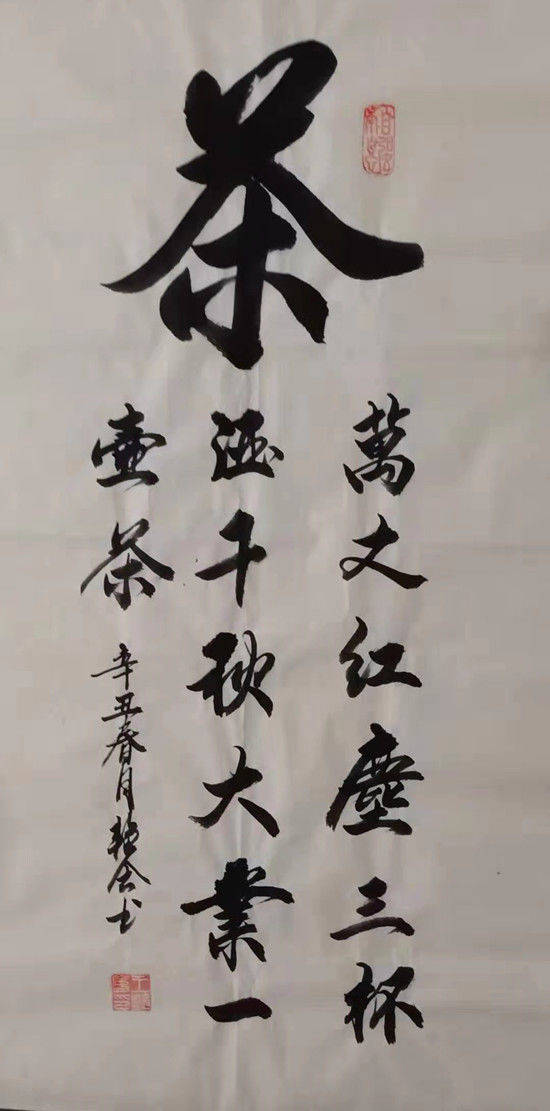 茶
萬丈红塵三杯
酒千秋大業一
壺茶
辛丑春月艳会书